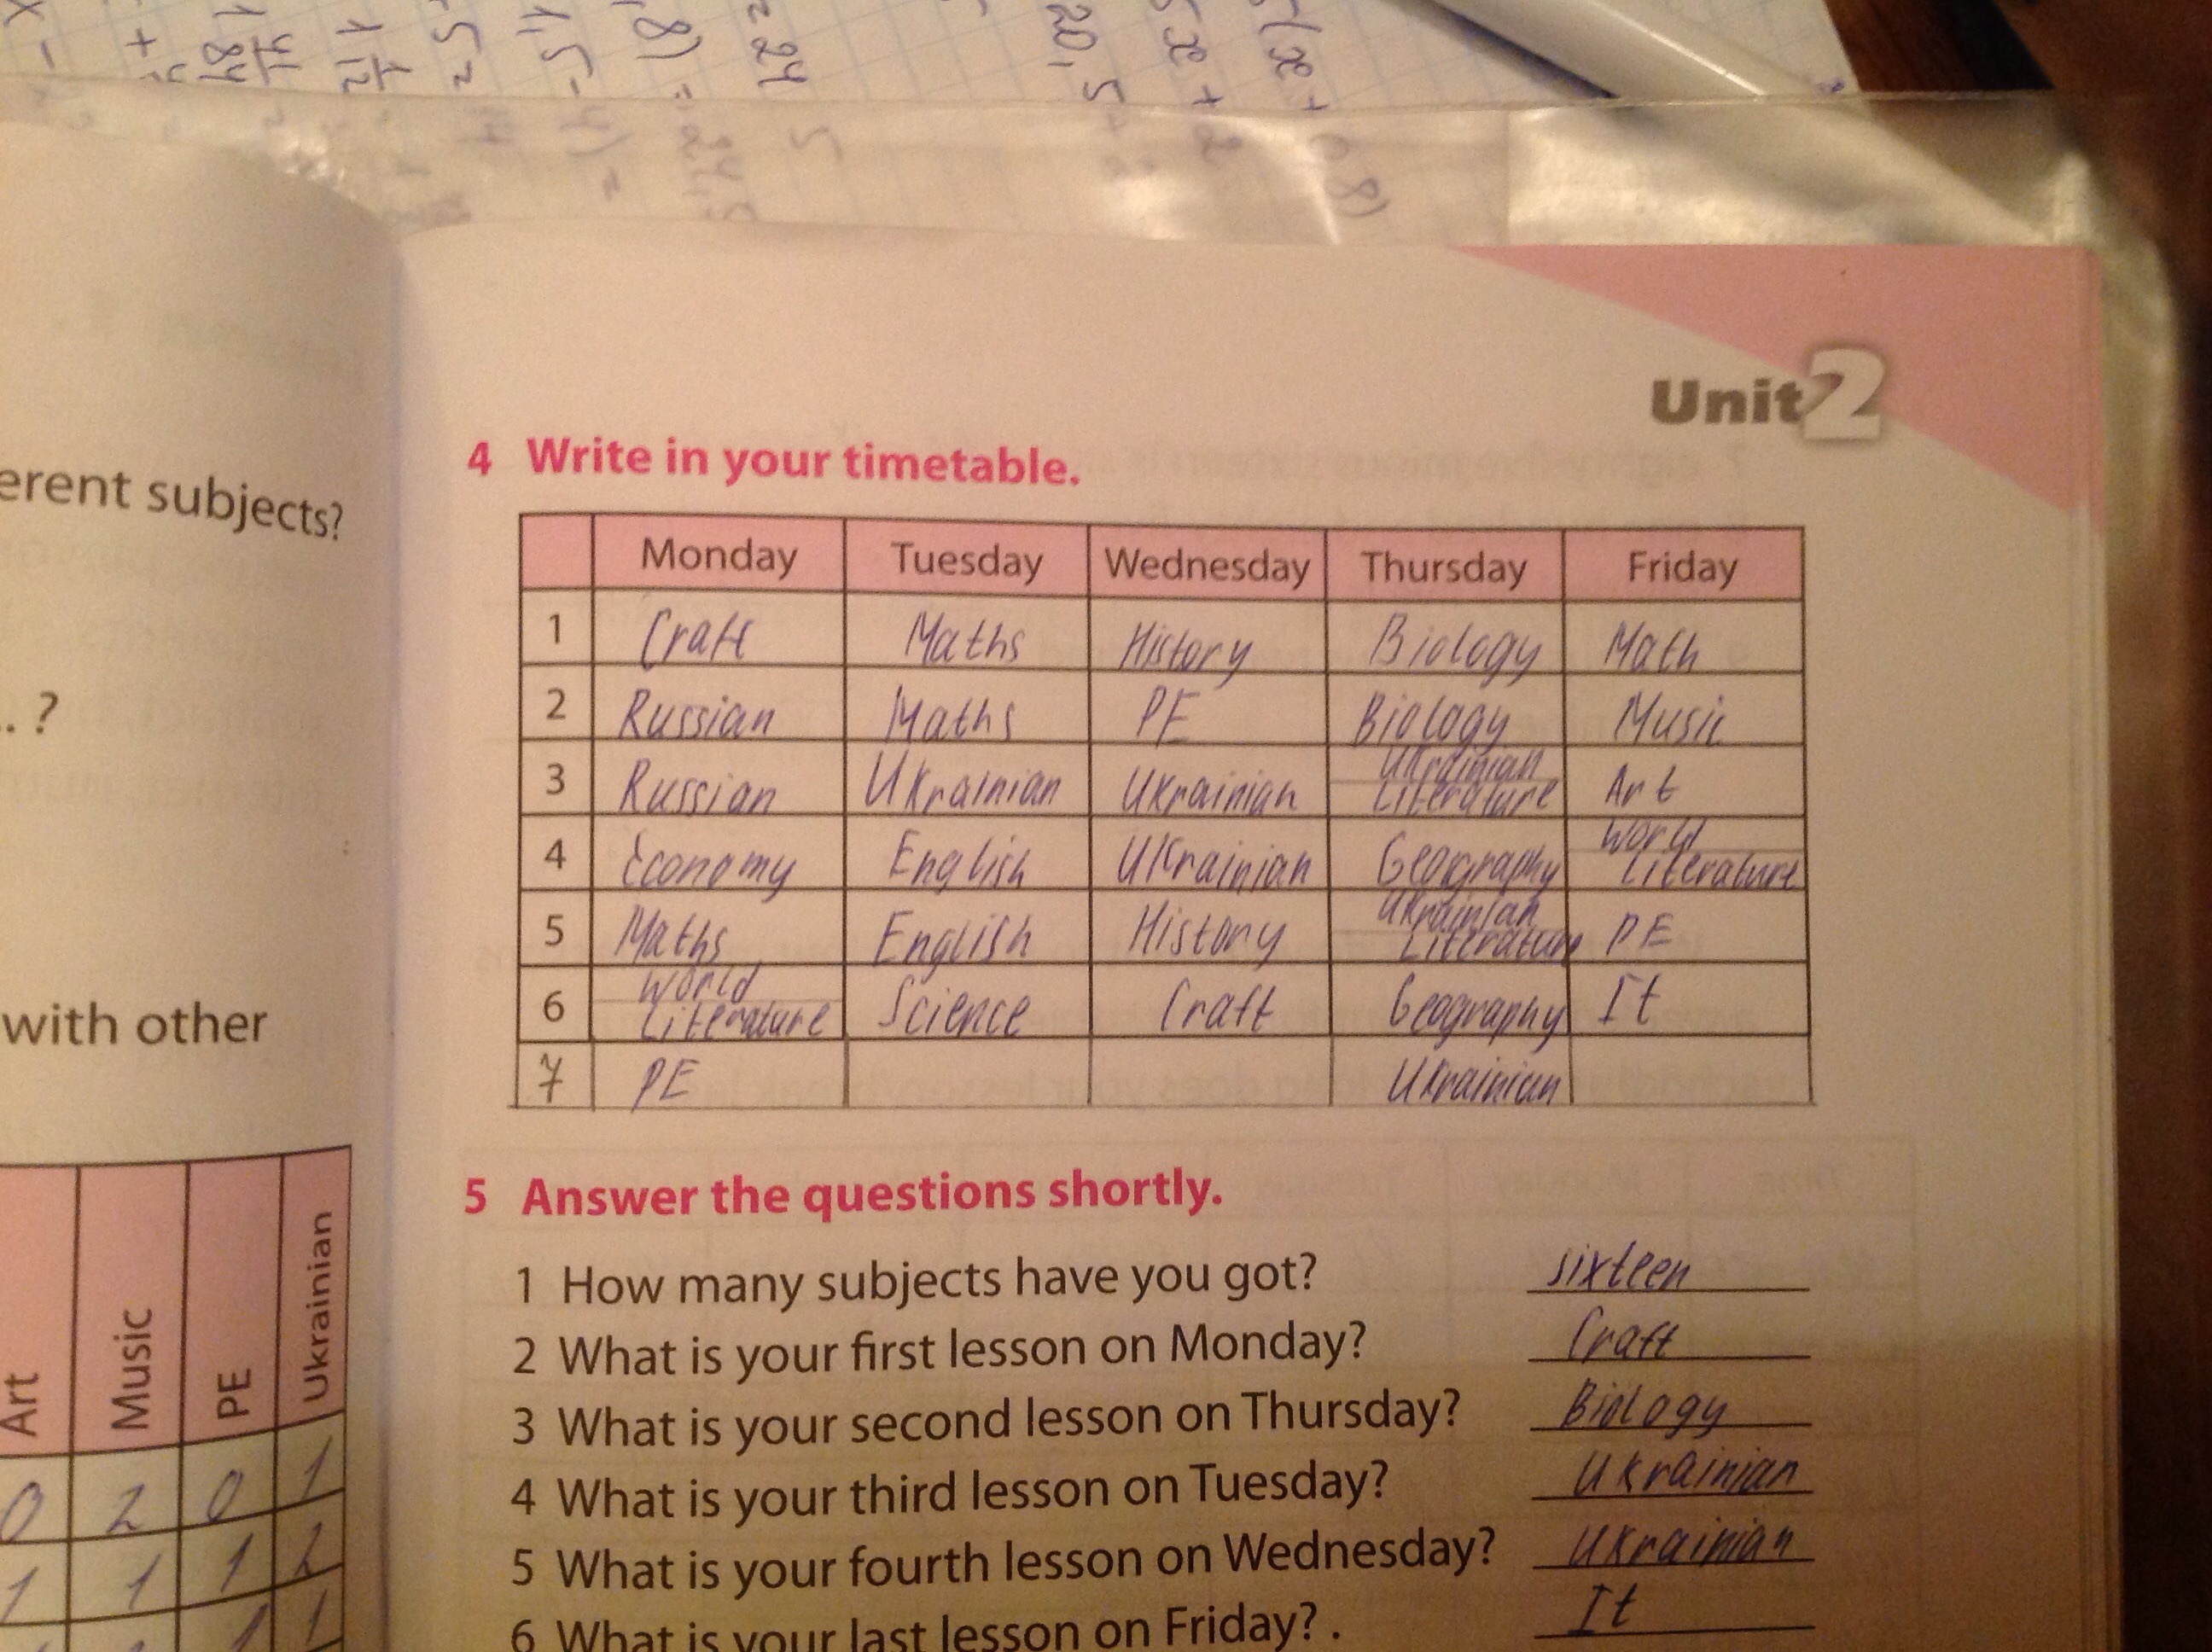 Unit 2
erent subjects?
.. ?
with other
Art Music PE Ukrainian
0 2 0 1
1 1 1 2
1 1
4 Write in your timetable.
Monday Tuesday Wednesday Thursday Friday
1 Craft Maths History Biology Math
2 Russian Maths PE Biology Music
3 Russian Ukrainian Ukrainian Ukrainian Literature Art
4 Economy English Ukrainian Geography World Literature
5 Maths English History Ukrainian Literature PE
6 World Literature Science Craft Geography It
7 PE Ukrainian
5 Answer the questions shortly.
1 How many subjects have you got? sixteen
2 What is your first lesson on Monday? Craft
3 What is your second lesson on Thursday? Biology
4 What is your third lesson on Tuesday? Ukrainian
5 What is your fourth lesson on Wednesday? Ukrainian
6 What is your last lesson on Friday? . It